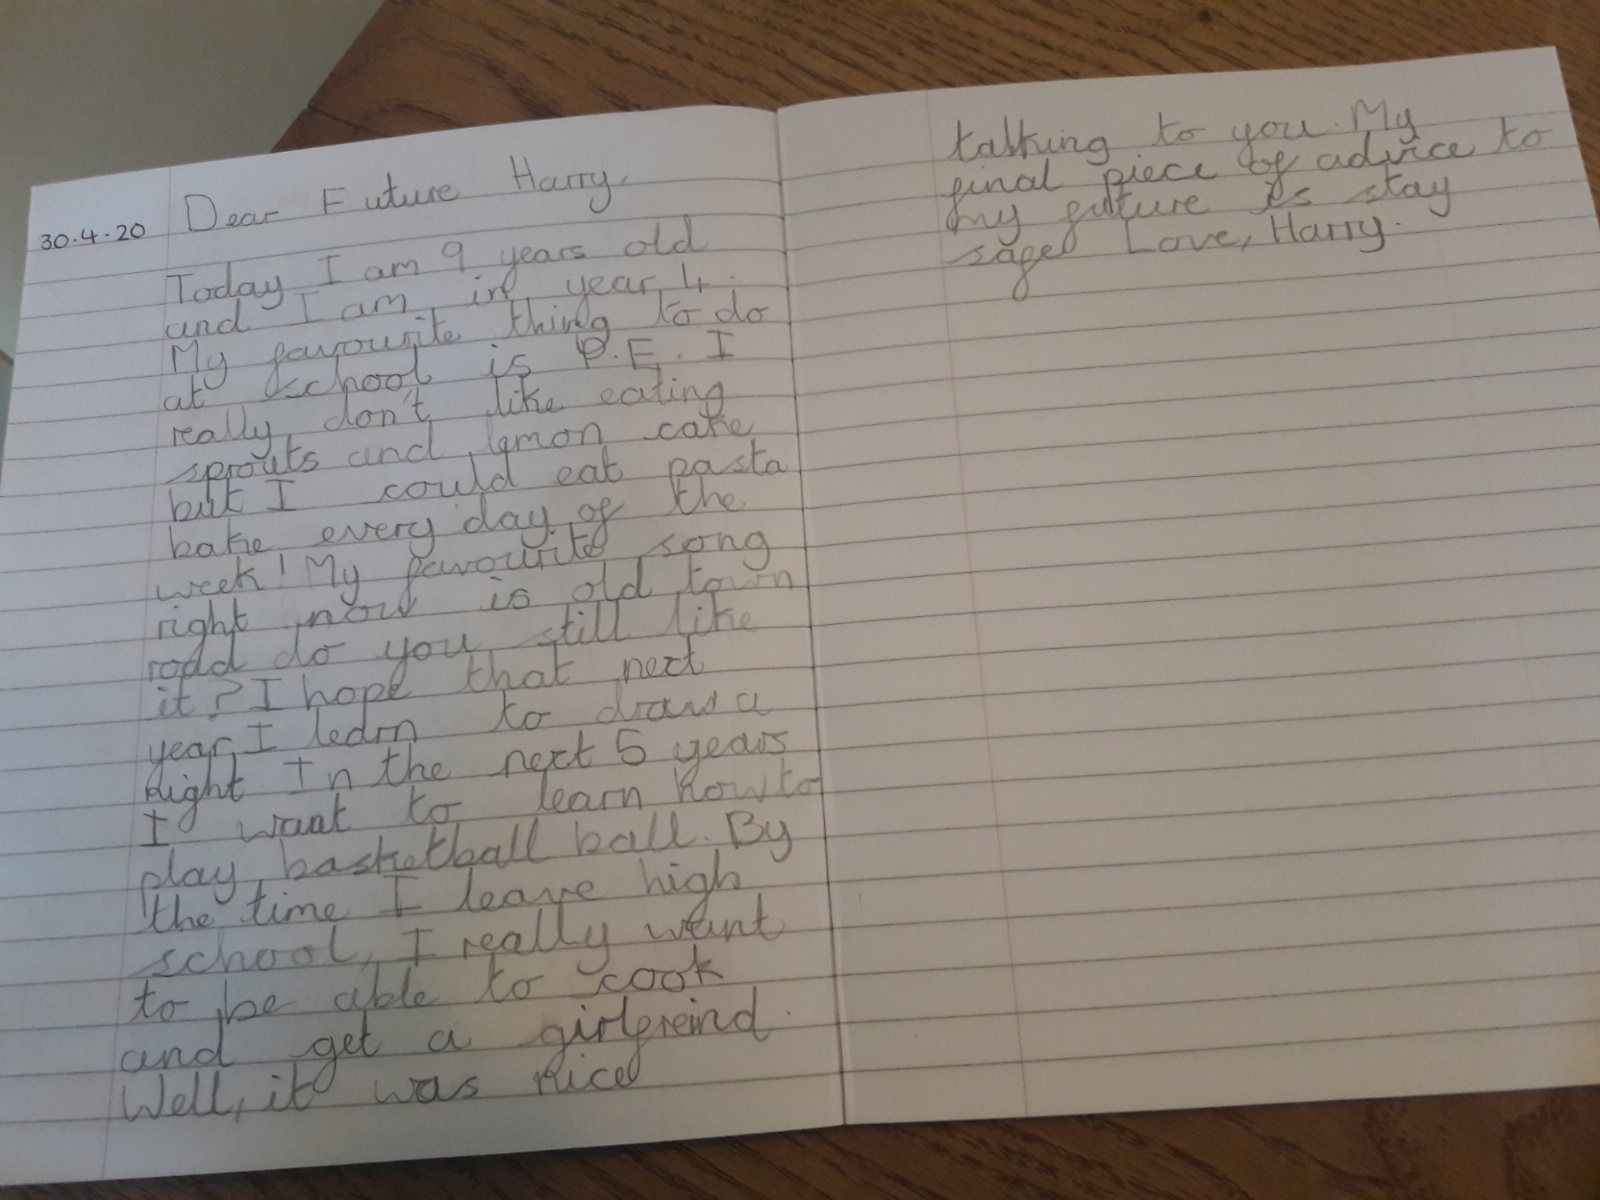 30.4.20
Dear Future Harry,
Today I am 9 years old
and I am in year 4.
My favourite thing to do
at school is P.E. I
really don't like eating
sprouts and lemon cake
but I could eat pasta
bake every day of the
week! My favourite song
right now is old town
road do you still like
it? I hope that next
year I learn to draw a
In the next 5 years
I want to learn how to
play basketball ball. By
the time I leave high
school, I really want
to be able to cook
and get a girlfreind.
Well, it was nice
talking to you. My
final piece of advice to
my future is stay
safe Love, Harry.